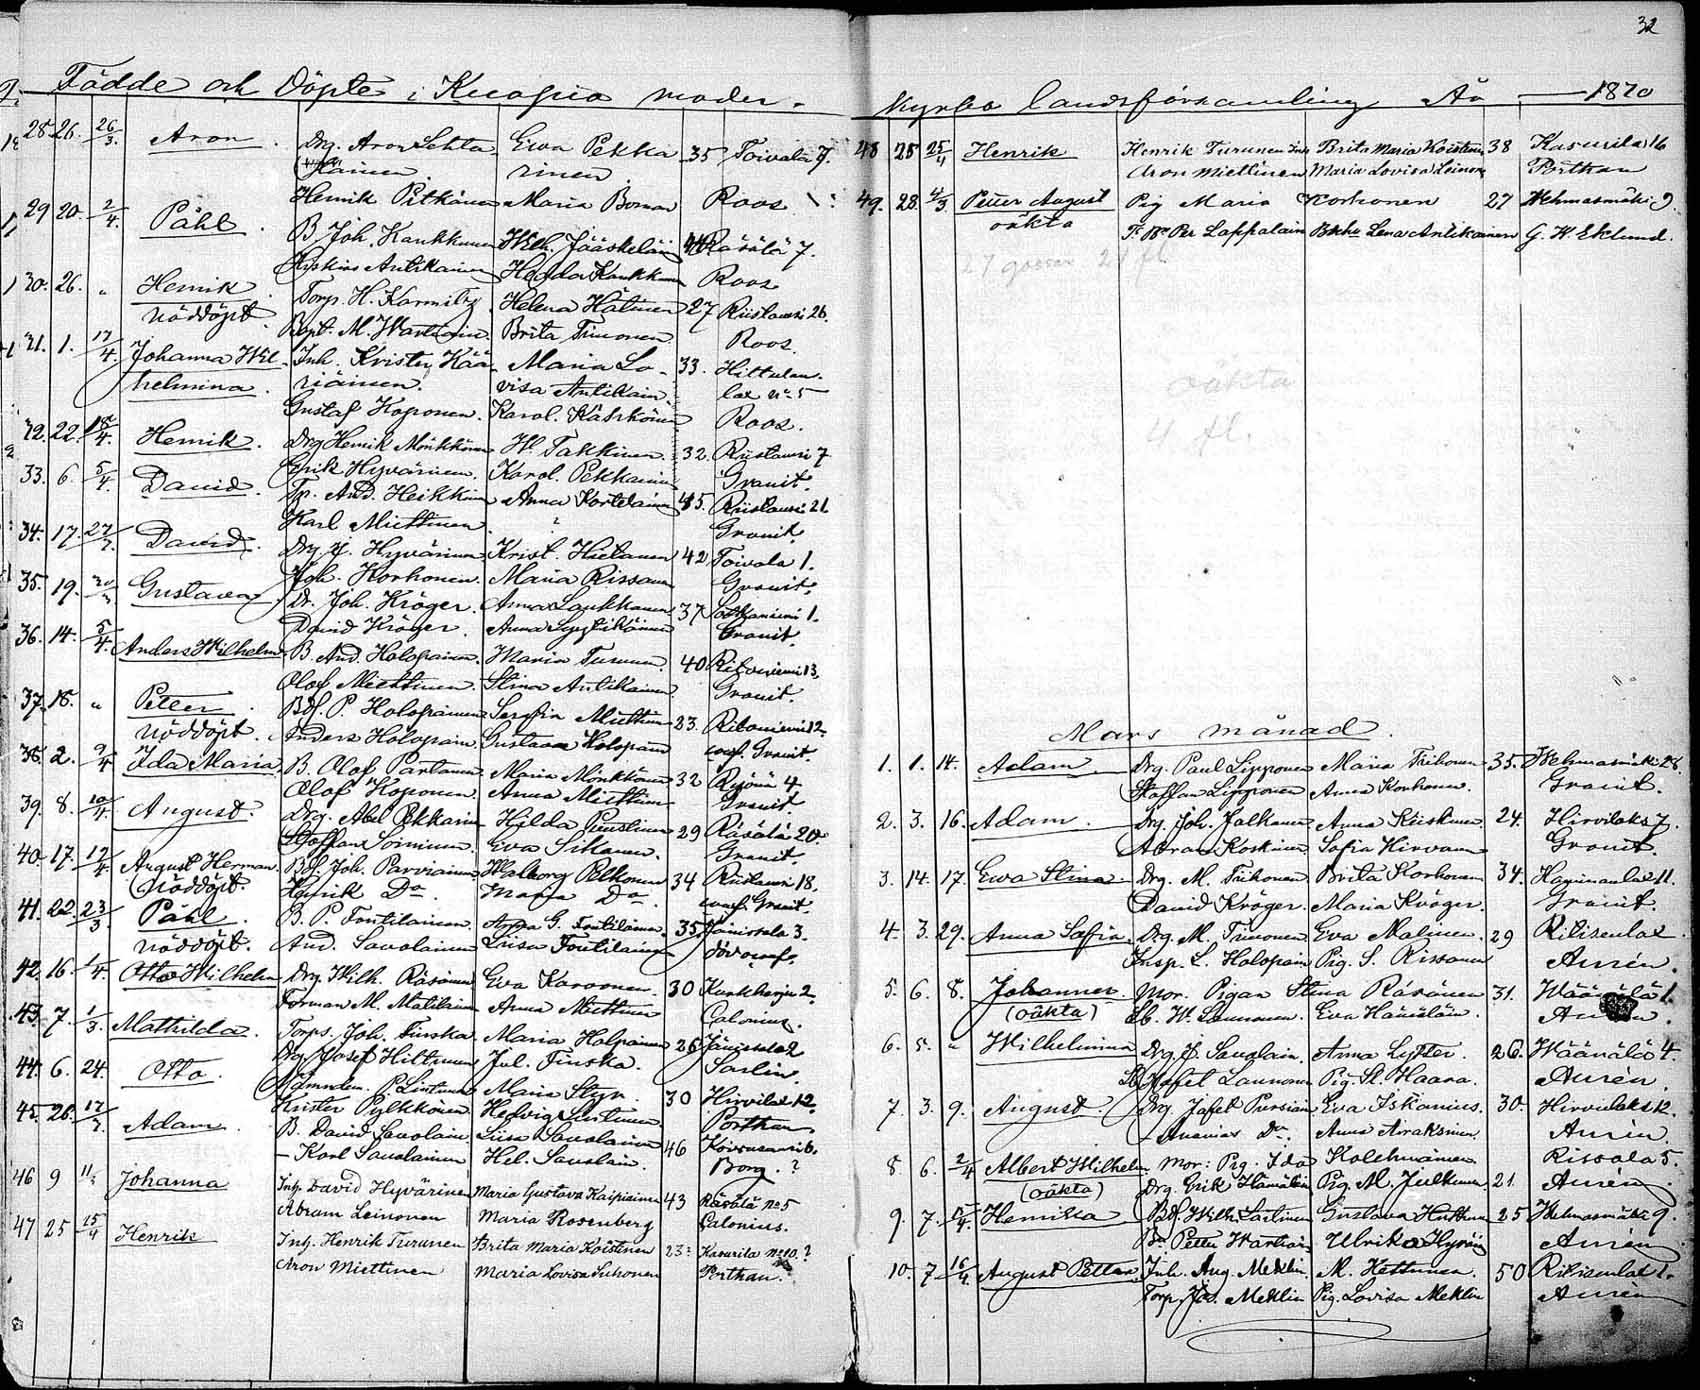 32
Födde och Döpte i Kuopio moder-
kyrko landsförsamling År 1870
28. 26. 26/3. Aron Drg. Aron Lehta Ewa Pekka 35 Toivala 7.
rinen
Henrik Pitkänen Maria Boman Roos
29 20. 2/4. Påhl B Joh. Kaukkunen Wilh. Jääskeläin Räsälä 7.
Antikainen Hedda Kaukkunen Roos
30. 26. " Henrik Torp. H. Karmitz Helena Hätinen 27 Riistavesi 26.
nöddöpt. M. Wartiain Brita Timonen Roos.
31. 1. 17/4. Johanna Wil- Inh. Krister Kää- Maria Lo- 33. Hittulan-
helmina riäinen. visa Antikain. lax no 5
Gustaf Koponen. Karol. Kärkkäinen Roos.
32. 22. 18/4. Henrik. Drg Henrik Mönkkönen W. Takkinen 32. Riistavesi 7
Erik Hyvärinen. Karol. Pekkarinen Granit.
33. 6. 5/4. David. Tp. And. Heikkinen Anna Kortelainen 45. Riistavesi 21
Karl Miettinen ? Granit.
34. 17. 27/3. David Drg. Hyvärinen Krist. Hietanen 42 Toivala 1.
Joh. Korhonen. Maria Rissanen Granit.
35. 19. Gustava Dr. Joh. Kröger. Anna Laukkanen 37 1.
David Kröger. Anna Granit.
36. 14. 5/4. Anders Wilhelm B. And. Holopainen. Maria Turunen 40 Ritoniemi 13.
Olof Miettinen. Stina Antikainen Granit.
37. 18. " Petter Bdf. P. Holopainen Serafia Miettinen 23. Ritoniemi 12
nöddöpt. Anders Holopain. Gustava Holopain conf. Granit.
38. 2. 9/4 Ida Maria B. Olof Partanen Maria Mönkkönen 32 4
Olof Koponen. Anna Miettinen Granit.
39. 8. 10/4. August. Drg. Abel Pekkarin Hilda Puustinen 29 Räsälä 20.
Staffan Sorminen. Eva Sillanen. Granit.
40. 17. 17/4. August Herman Bdf. Joh. Parviainen Walborg Pelkonen 34 Riistavesi 18.
(Nöddöpt. Henrik Do. Maria Do. conf. Granit.
41. 22. 23/3. Påhl. B. P. Tontilainen G. Tontilainen 35 Jänissalo 3.
nöddöpt. And. Savolainen Liisa Tontilainen
42. 16. 1/4. Otto Wilhelm Drg. Wilh. Räsänen Eva Karvonen 30 Kurkiharju 2.
Forman M. Matilainen Anna Miettinen Calonius.
43. 7. 1/3. Mathilda. Torps. Joh. Tirska. Maria Holopainen 26 Jänissalo 2
Drg. Josef Hiltunen Jul. Tirska. Sarlin.
44. 6. 24. Otto. P. Lintunen Maria Styr. 30 Hirvilax 12.
Krister Pylkkönen Hedvig Lintunen. Porthan.
45. 26. 17/3. Adam. B. David Savolain Liisa Savolainen 46 6.
- Karl Savolainen Hel. Savolain. Borg. ?
46 9 Johanna Inh. David Hyvärinen Maria Gustava Kaipiainen 43 Räsälä no 5
Abram Leinonen Maria Rosenberg Calonius.
47 25 15/4 Henrik Inh. Henrik Turunen Brita Maria Koistinen 23: Kasurila no 10. ?
Aron Miettinen Maria Lovisa Porthan.
48 25 25/4 Henrik Henrik Turunen Inh Brita Maria Koistinen 38 Kasurila 16
Aron Miettinen Maria Lovisa Leinon Porthan
49. 28. 4/3. Petter August Pig Maria Korhonen 27 Wehmasmäki 9.
oäkta Per Lappalain Lena Antikainen G. W. Eklund.
27 gossar 21 fl.
oäkta
4 fl.
Mars månad.
1. 1. 14. Adam Drg. Paul Lipponen Maria Tirkonen 35. Wehmasmäki 28.
Staffan Lipponen Anna Korhonen. Granit.
2. 3. 16. Adam. Drg. Joh. Jalkanen Anna Kiiskinen. 24. Hirvilaks 7.
Abram Koskinen Sofia Hirvonen Granit.
3. 14. 17. Ewa Stina Drg. M. Tirkonen Brita Korhonen 34. Haminanlax 11.
David Kröger. Maria Kröger. Granit.
4. 3. 29. Anna Sofia Drg. M. Timonen Eva Malinen. 29 Ritisenlax.
Insp. L. Holopain Pig. S. Rissanen Aurén.
5. 6. 8. Johannes Mor. Pigan Stina Räsänen 31. Väänälä 1.
(oäkta) W. Launonen. Eva Hämäläin.
6. 5. " Wilhelmina Drg. Savolain. Anna Lyster. 26. Väänälä 4.
Launonen Pig. St. Haara. Aurén.
7. 3. 9. August. Drg. Jafet Pursiain Eva Iskanius. 30. Hirvilaks 12.
- Ananias Do. Anna Axaksinen. Aurén.
8 6. 2/4 Albert Wilhelm Mor: Pig. Ida Kolehmainen Rissala 5.
(oäkta) Drg. Erik Hämäläin Pig. M. Julkunen. 21. Aurén
9. 7. 15/4. Henrikka Bdf. Wilh. Sartinen Gustava Huttunen 25 Wehmasmäki 9.
Petter Wartiain Ulrika Hyvärin Aurén
10. 7 16/4 August Petter Inh. Aug. Meklin. M. Kettunen. 50 Ritisenlax 1.
Torp. Meklin Pig. Lovisa Meklin Aurén